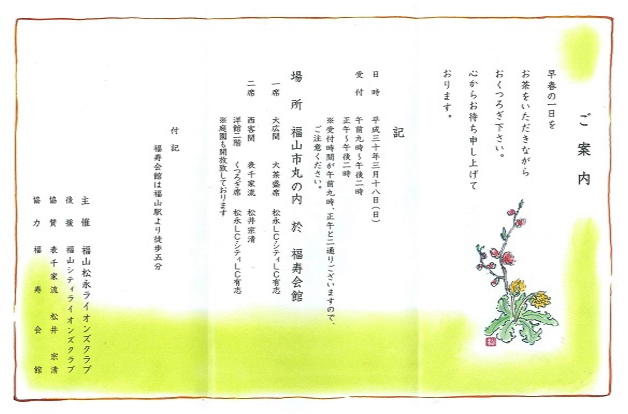 ご案内
早春の一日を
お茶をいただきながら
おくつろぎ下さい。
心からお待ち申し上げて
おります。
記
日時 平成三十年三月十八日(日)
受付 午前九時～午後二時
正午～午後二時
※受付時間が午前九時、正午と二通りございますので、
ご注意ください。
場所 福山市丸の内 於 福寿会館
一席 大広間 大茶盛席 松永LC・シティLC有志
二席 西客間 表千家流 松井宗清
洋館二階 くつろぎ席 松永LC・シティLC有志
※庭園も開放致しております
付記
福寿会館は福山駅より徒歩五分
主催 福山松永ライオンズクラブ
後援 福山シティライオンズクラブ
協賛 表千家流 松井宗清
協力 福寿会館